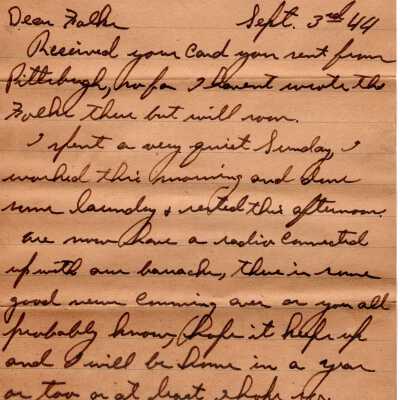 Dear Folks Sept. 3rd 44
Received your card you sent from
Pittsburgh, so far I havent wrote the
Folks there but will soon.
I spent a very quiet Sunday, I
worked this morning and done
some laundry & rested this afternoon.
are now have a radio connected
up with our barracks, there is some
good news comming over as you all
probably know, hope it keeps up
and I will be home in a year
or too or at least I hope so.